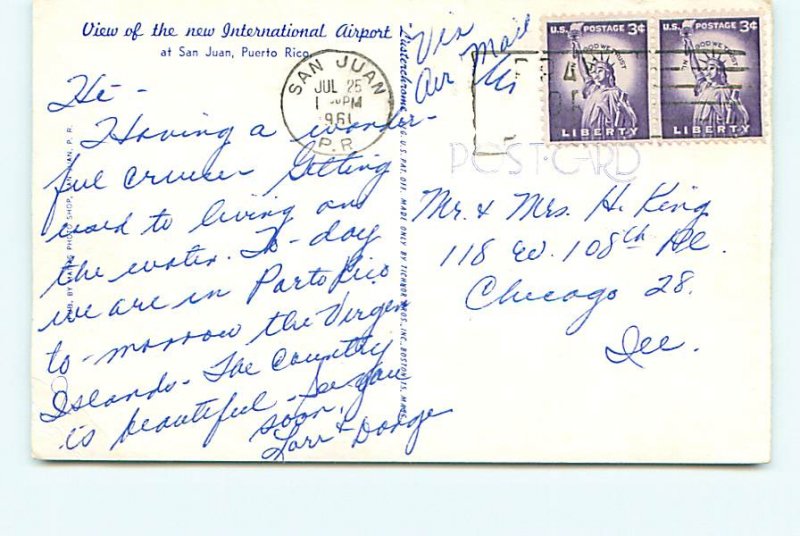 View of the new International Airport
at San Juan, Puerto Rico
Hi -
Having a wonder-
ful cruise Getting
used to living on
the water. To-day
we are in Porto Rico
to-morrow the Virgin
Islands - The Country
is beautiful - See you
soon,
PUB. BY MATIAS PHOTO SHOP, SAN JUAN, P. R.
Via
Air Mail
SAN JUAN
JUL 25
PM
1961
P.R.
U.S. POSTAGE 3¢
IN GOD WE TRUST
LIBERTY
U.S. POSTAGE 3¢
IN GOD WE TRUST
LIBERTY
POST CARD
Mr. & Mrs. H. King
118 W. 108th Pl.
Chicago 28.
Ill.